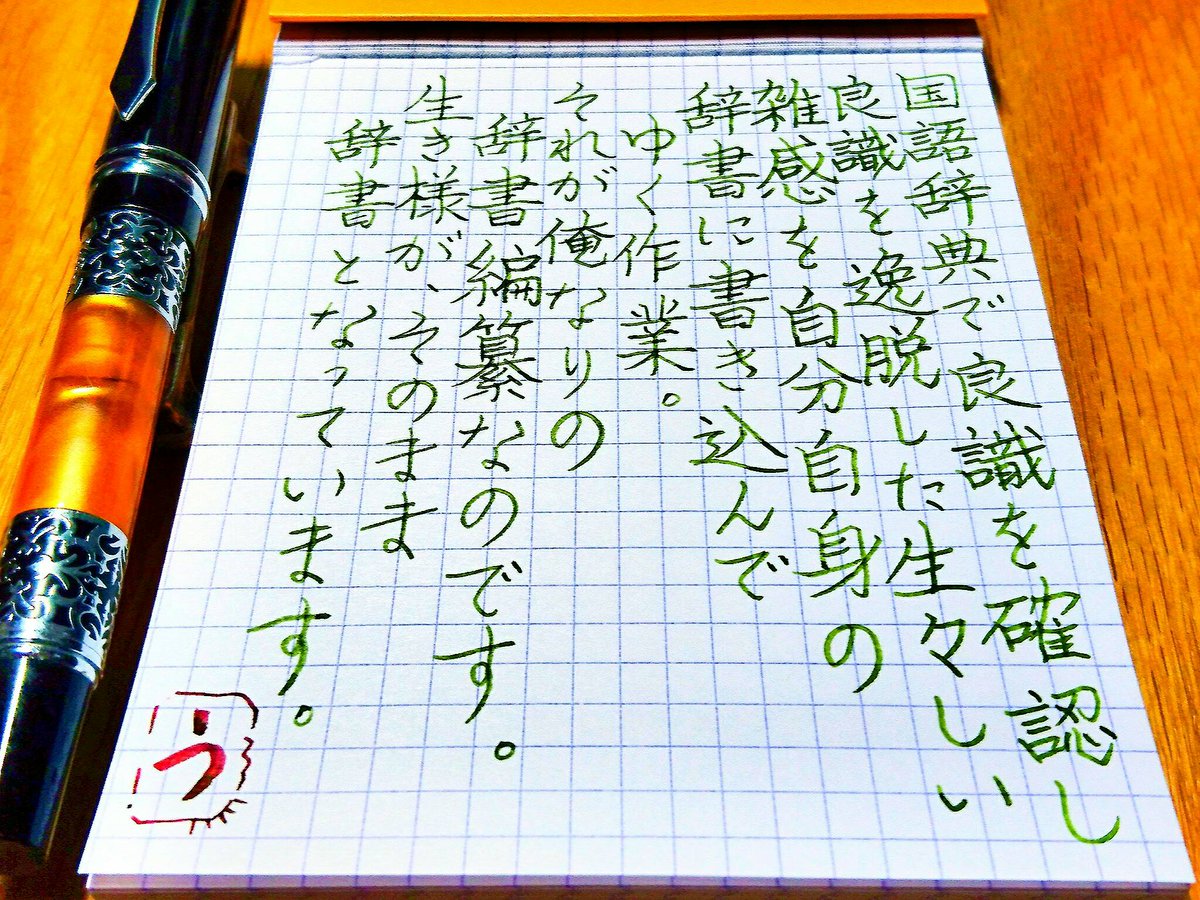 国語辞典で良識を確認し
良識を逸脱した生々しい
雑感を自分自身の
辞書に書き込んで
ゆく作業。
それが俺なりの
辞書編纂なのです。
生き様が、そのまま
辞書となっています。
う